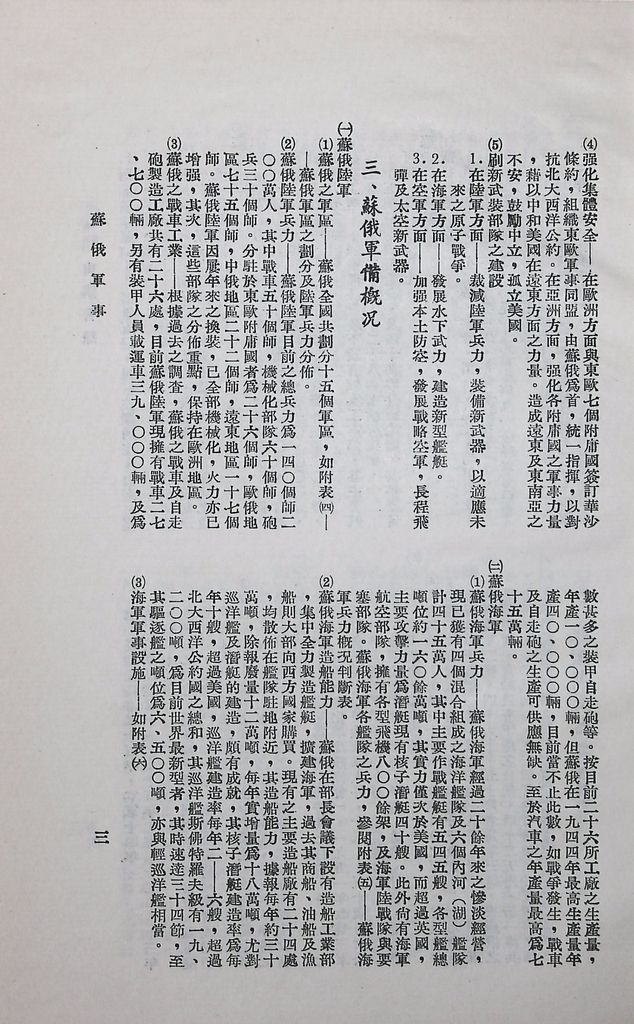 ⑷强化集體安全——在歐洲方面與東歐七個附庸國簽訂華沙
條約，組織東歐軍事同盟，由蘇俄爲首，統一指揮，以對
抗北大西洋公約。在亞洲方面，强化各附庸國之軍事力量
，藉以中和美國在遠東方面之力量。造成遠東及東南亞之
不安，鼓勵中立，孤立美國。
⑸刷新武裝部隊之建設
1.在陸軍方面——裁減陸軍兵力，裝備新武器，以適應未
來之原子戰爭。
2.在海軍方面——發展水下武力，建造新型艦艇。
3.在空軍方面——加强本土防空，發展戰略空軍，長程飛
彈及太空新武器。
三、蘇俄軍備概況
㈠蘇俄陸軍
⑴蘇俄之軍區——蘇俄全國共劃分十五個軍區，如附表㈣—
—蘇俄軍區之劃分及陸軍兵力分佈。
⑵蘇俄陸軍兵力——蘇俄陸軍目前之總兵力爲一四〇個師二
〇〇萬人，其中戰車五十個師，機械化部隊六十個師，砲
兵三十個師。分駐於東歐附庸國者爲二十六個師，歐俄地
區七十五個師，中俄地區二十二個師，遠東地區一十七個
師。蘇俄陸軍因屢年來之換裝，已全部機械化，火力亦已
增强，其次，這些部隊之分佈重點，保持在歐洲地區。
⑶蘇俄之戰車工業——根據過去之調查，蘇俄之戰車及自走
砲製造工廠共有二十六處，目前蘇俄陸軍現擁有戰車二七
、七〇〇輛，另有裝甲人員載運車三九、〇〇〇輛，及爲
數甚多之裝甲自走砲等。按目前二十六所工廠之生產量，
年產一〇、〇〇〇輛，但蘇俄在一九四四年最高生產量年
產四〇、〇〇〇輛，目前當不止此數，如戰爭發生，戰車
及自走砲之生產可供應無缺。至於汽車之年產量最高爲七
十五萬輛。
㈡蘇俄海軍
⑴蘇俄海軍兵力——蘇俄海軍經過二十餘年來之慘淡經營，
現已獲有四個混合組成之海洋艦隊及六個內河（湖）艦隊
計四十五萬人，其中主要作戰艦艇有五四五艘，各型艦總
噸位約一六〇餘萬噸，其實力僅次於美國，而超過英國，
主要攻擊力量爲潛艇現有核子潛艇四十艘。此外尙有海軍
航空部隊，擁有各型飛機八〇〇餘架，及海軍陸戰隊與要
塞部隊。蘇俄海軍各艦隊之兵力，參閱附表㈤——蘇俄海
軍兵力概况判斷表。
⑵蘇俄海軍造船能力——蘇俄在部長會議下設有造船工業部
，集中全力製造艦艇，擴建海軍，過去其商船、油船及漁
船則大部向西方國家購買。現有之主要造船廠有二十四處
，均散佈在艦隊駐地附近，其造船能力，據報每年約三十
萬噸，除報廢量十二萬噸，每年實增量爲十八萬噸，尤對
巡洋艦及潛艇的建造，頗有成就，其核子潛艇建造率爲每
年十艘，超過美國，巡洋艦建造率每年二——六艘，超過
北大西洋公約國之總和，其巡洋艦斯佛特羅夫級有一九、
二〇〇噸，爲目前世界最新型者，其時速達三十四節，至
其驅逐艦之噸位爲六、五〇〇噸，亦與輕巡洋艦相當。
⑶海軍軍事設施——如附表㈥
蘇俄軍事
三